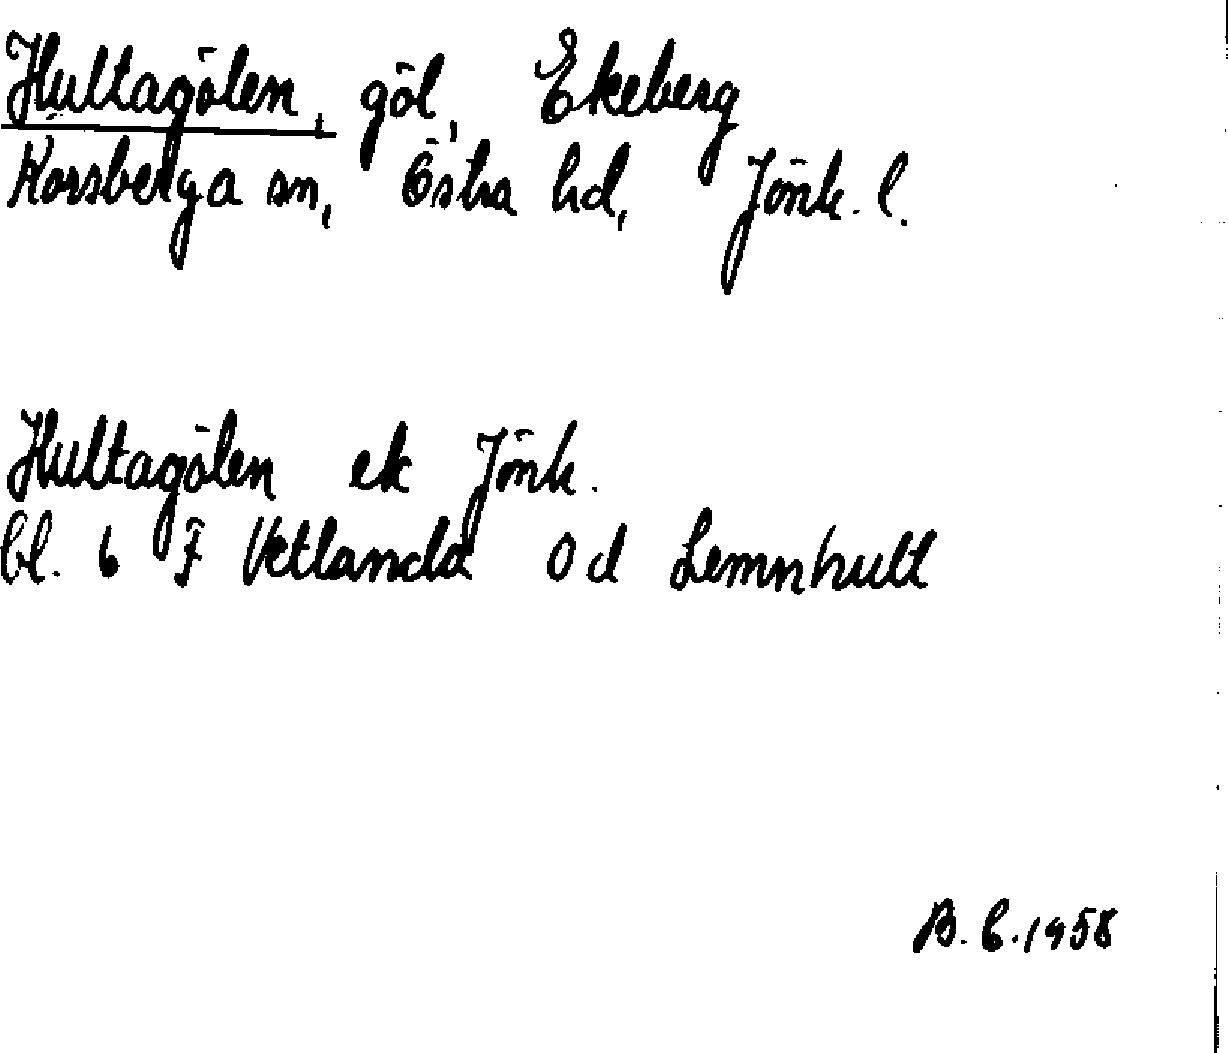 Hultagölen, göl, Ekeberg
Korsberga sn, Östra hd, Jönk. l.
Hultagölen ek Jönk.
bl. 6 F Vetlanda Od Lemnhult
B. C. 1958